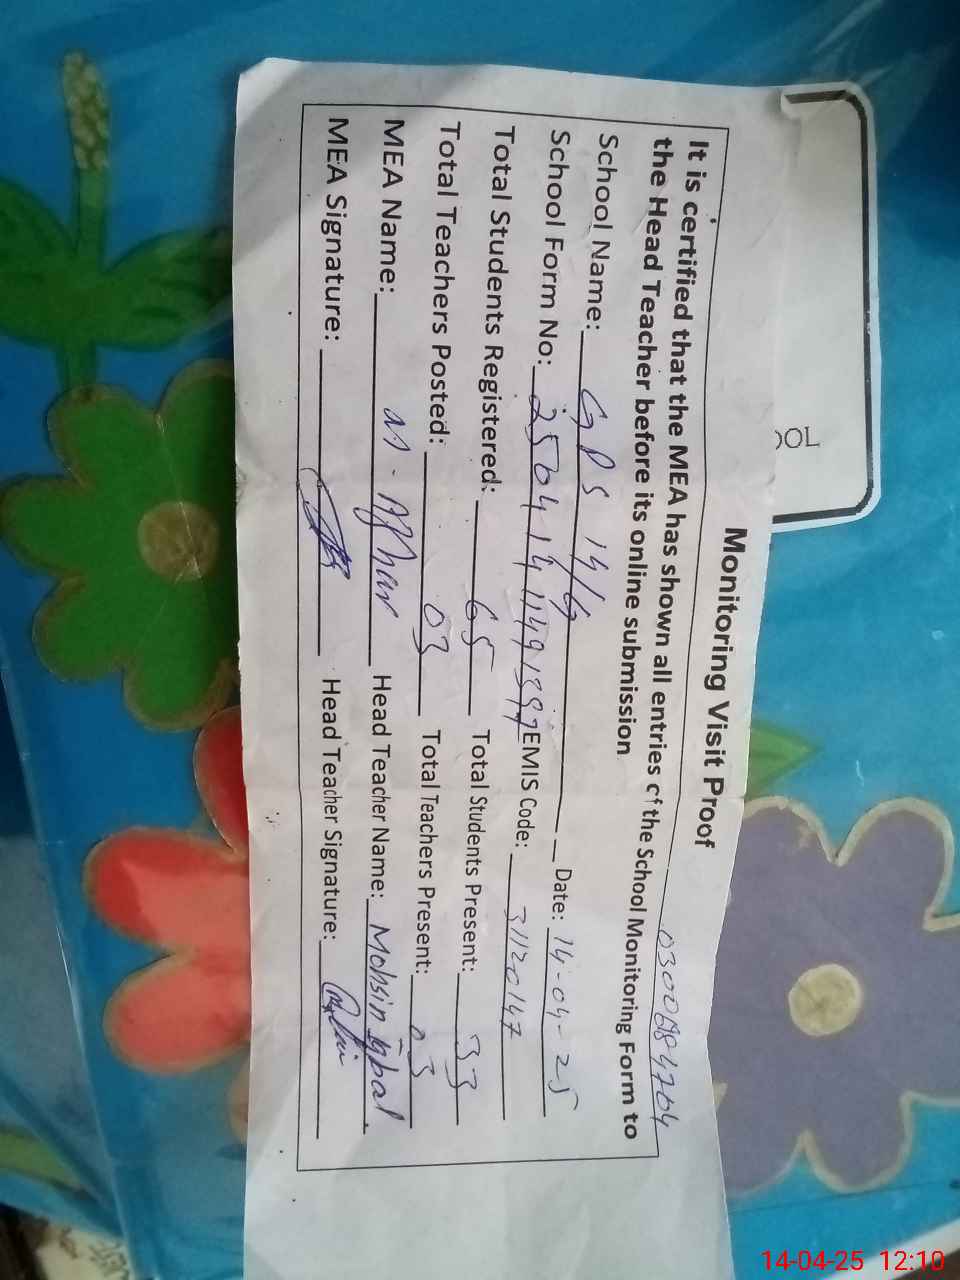 OOL
Monitoring Visit Proof
0300884704
It is certified that the MEA has shown all entries of the School Monitoring Form to
the Head Teacher before its online submission
School Name: GPS 14/G Date: 14-04-25
School Form No: EMIS Code: 31120147
Total Students Registered: 65 Total Students Present: 33
Total Teachers Posted: 03 Total Teachers Present: 03
MEA Name: M. Azhar Head Teacher Name: Mohsin iqbal
MEA Signature: Head Teacher Signature:
14-04-25 12:10